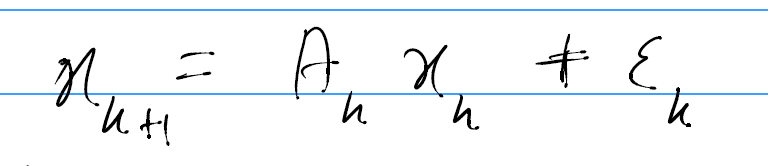 x_{k+1} = A_k x_k + ε_k